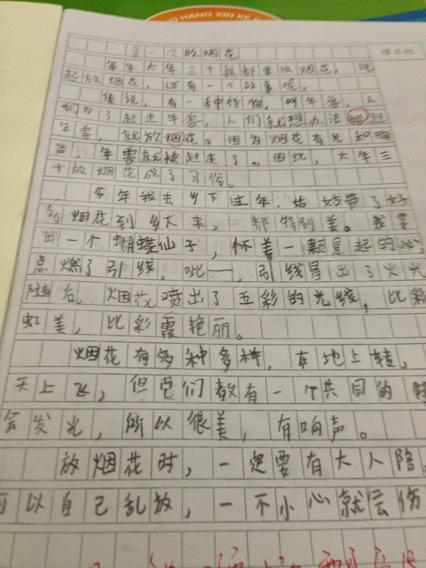 第一次放烟花
每年大年三十我都要放烟花，说
起放烟花，还有一个故事呢。
传说，有一种怪物，叫年兽，人
们为了赶走年兽，人们就想办法
年兽，就放烟花。因为烟花有光和响
声，年兽就被赶走了。因此，大年三
十放烟花成了习俗。
今年我去乡下过年，姑姑带了好
多烟花到乡下来，都特别美。我拿
出一个蝴蝶仙子，怀着一颗的心
点燃了引线。呲一，引线冒出了火光
随后，烟花喷出了五彩的光线，比彩
虹美，比彩霞艳丽。
烟花有多种多样，在地上转，
天上飞，但它们都有一个共同的特
会发光，所以很美，有响声。
放烟花时，一定要有大人陪
可以自己乱放，一不小心就会伤